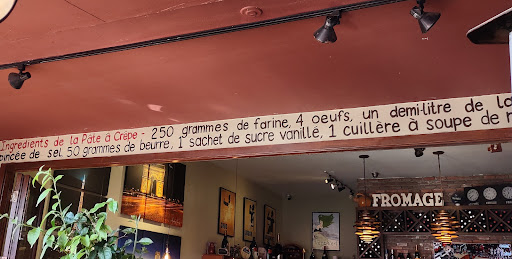 Ingredients de la Pâte à Crêpe - 250 grammes de farine, 4 oeufs, un demi-litre de
pincée de sel, 50 grammes de beurre, 1 sachet de sucre vanillé, 1 cuillère à soupe de
FROMAGE